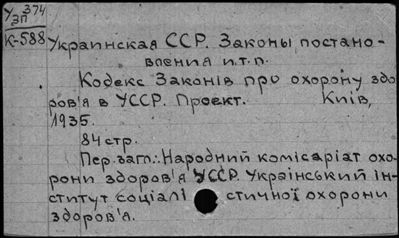 У 374
ЗП
К-588
Украинская ССР. Законы постано-
вления и.т.п.
Кодекс Законів про охорону здо
ров'я в УССР. Проєкт. Київ,
1935.
84 стр.
Пер.загл.: Народний комісаріат охо-
рони здоров'я УССР. Український ін-
ститут соціалі стичної охорони
здоров'я.